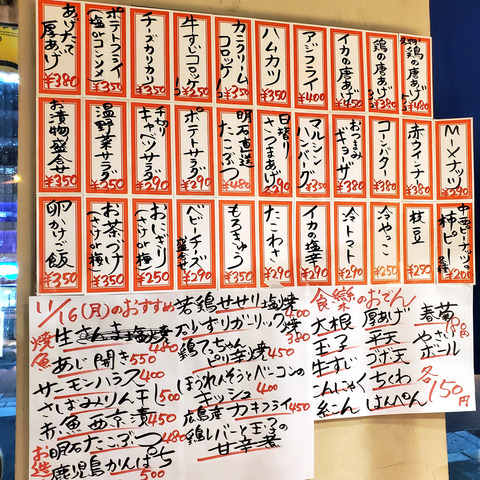 名物 鶏の唐あげ 5コ ¥480
鶏の唐あげ 3コ ¥380
イカの唐あげ ¥450
アジフライ ¥400
ハムカツ ¥350
カニクリームコロッケ ¥350
牛すじコロッケ ¥350
チーズカリカリ ¥350
ポテトフライ (塩orコンソメ) ¥350
あげたて厚あげ ¥380
Mナッツ ¥290
赤ウインナー ¥380
コーンバター ¥380
おつまみギョーザ ¥380
マルシンハンバーグ ¥350
日替りさつまあげ ¥290
明石直送たこぶつ ¥480
ポテトサラダ ¥290
千切りキャベツサラダ ¥290
温野菜サラダ ¥350
お漬物盛合せ ¥350
中西ピーナッツの柿ピー ¥200
枝豆 ¥290
冷やっこ ¥250
冷トマト ¥290
イカの塩辛 ¥290
たこわさ ¥290
もろきゅう ¥350
ベビーチーズ盛合せ ¥290
おにぎり (さけor梅) ¥250
お茶づけ (さけor梅) ¥350
卵かけご飯 ¥350
11/16(月)のおすすめ
焼魚
生さんま塩焼
あじ開き 550
サーモンハラス 480
さばみりん干し 400
赤魚西京漬 500
お造
明石たこぶつ 450
鹿児島かんぱち 480
500
若鶏せせり塩焼 400
ズリすりガーリック焼 380
鶏てっちゃんピリ辛焼 450
ほうれんそうとベーコンのキッシュ 400
広島産カキフライ 450
鶏レバーと玉子の甘辛煮
食樂のおでん
大根
玉子
牛すじ
こんにゃく
糸こん
厚あげ
平天
ゴボ天
ちくわ
はんぺん
春菊
やさいボール
各150円